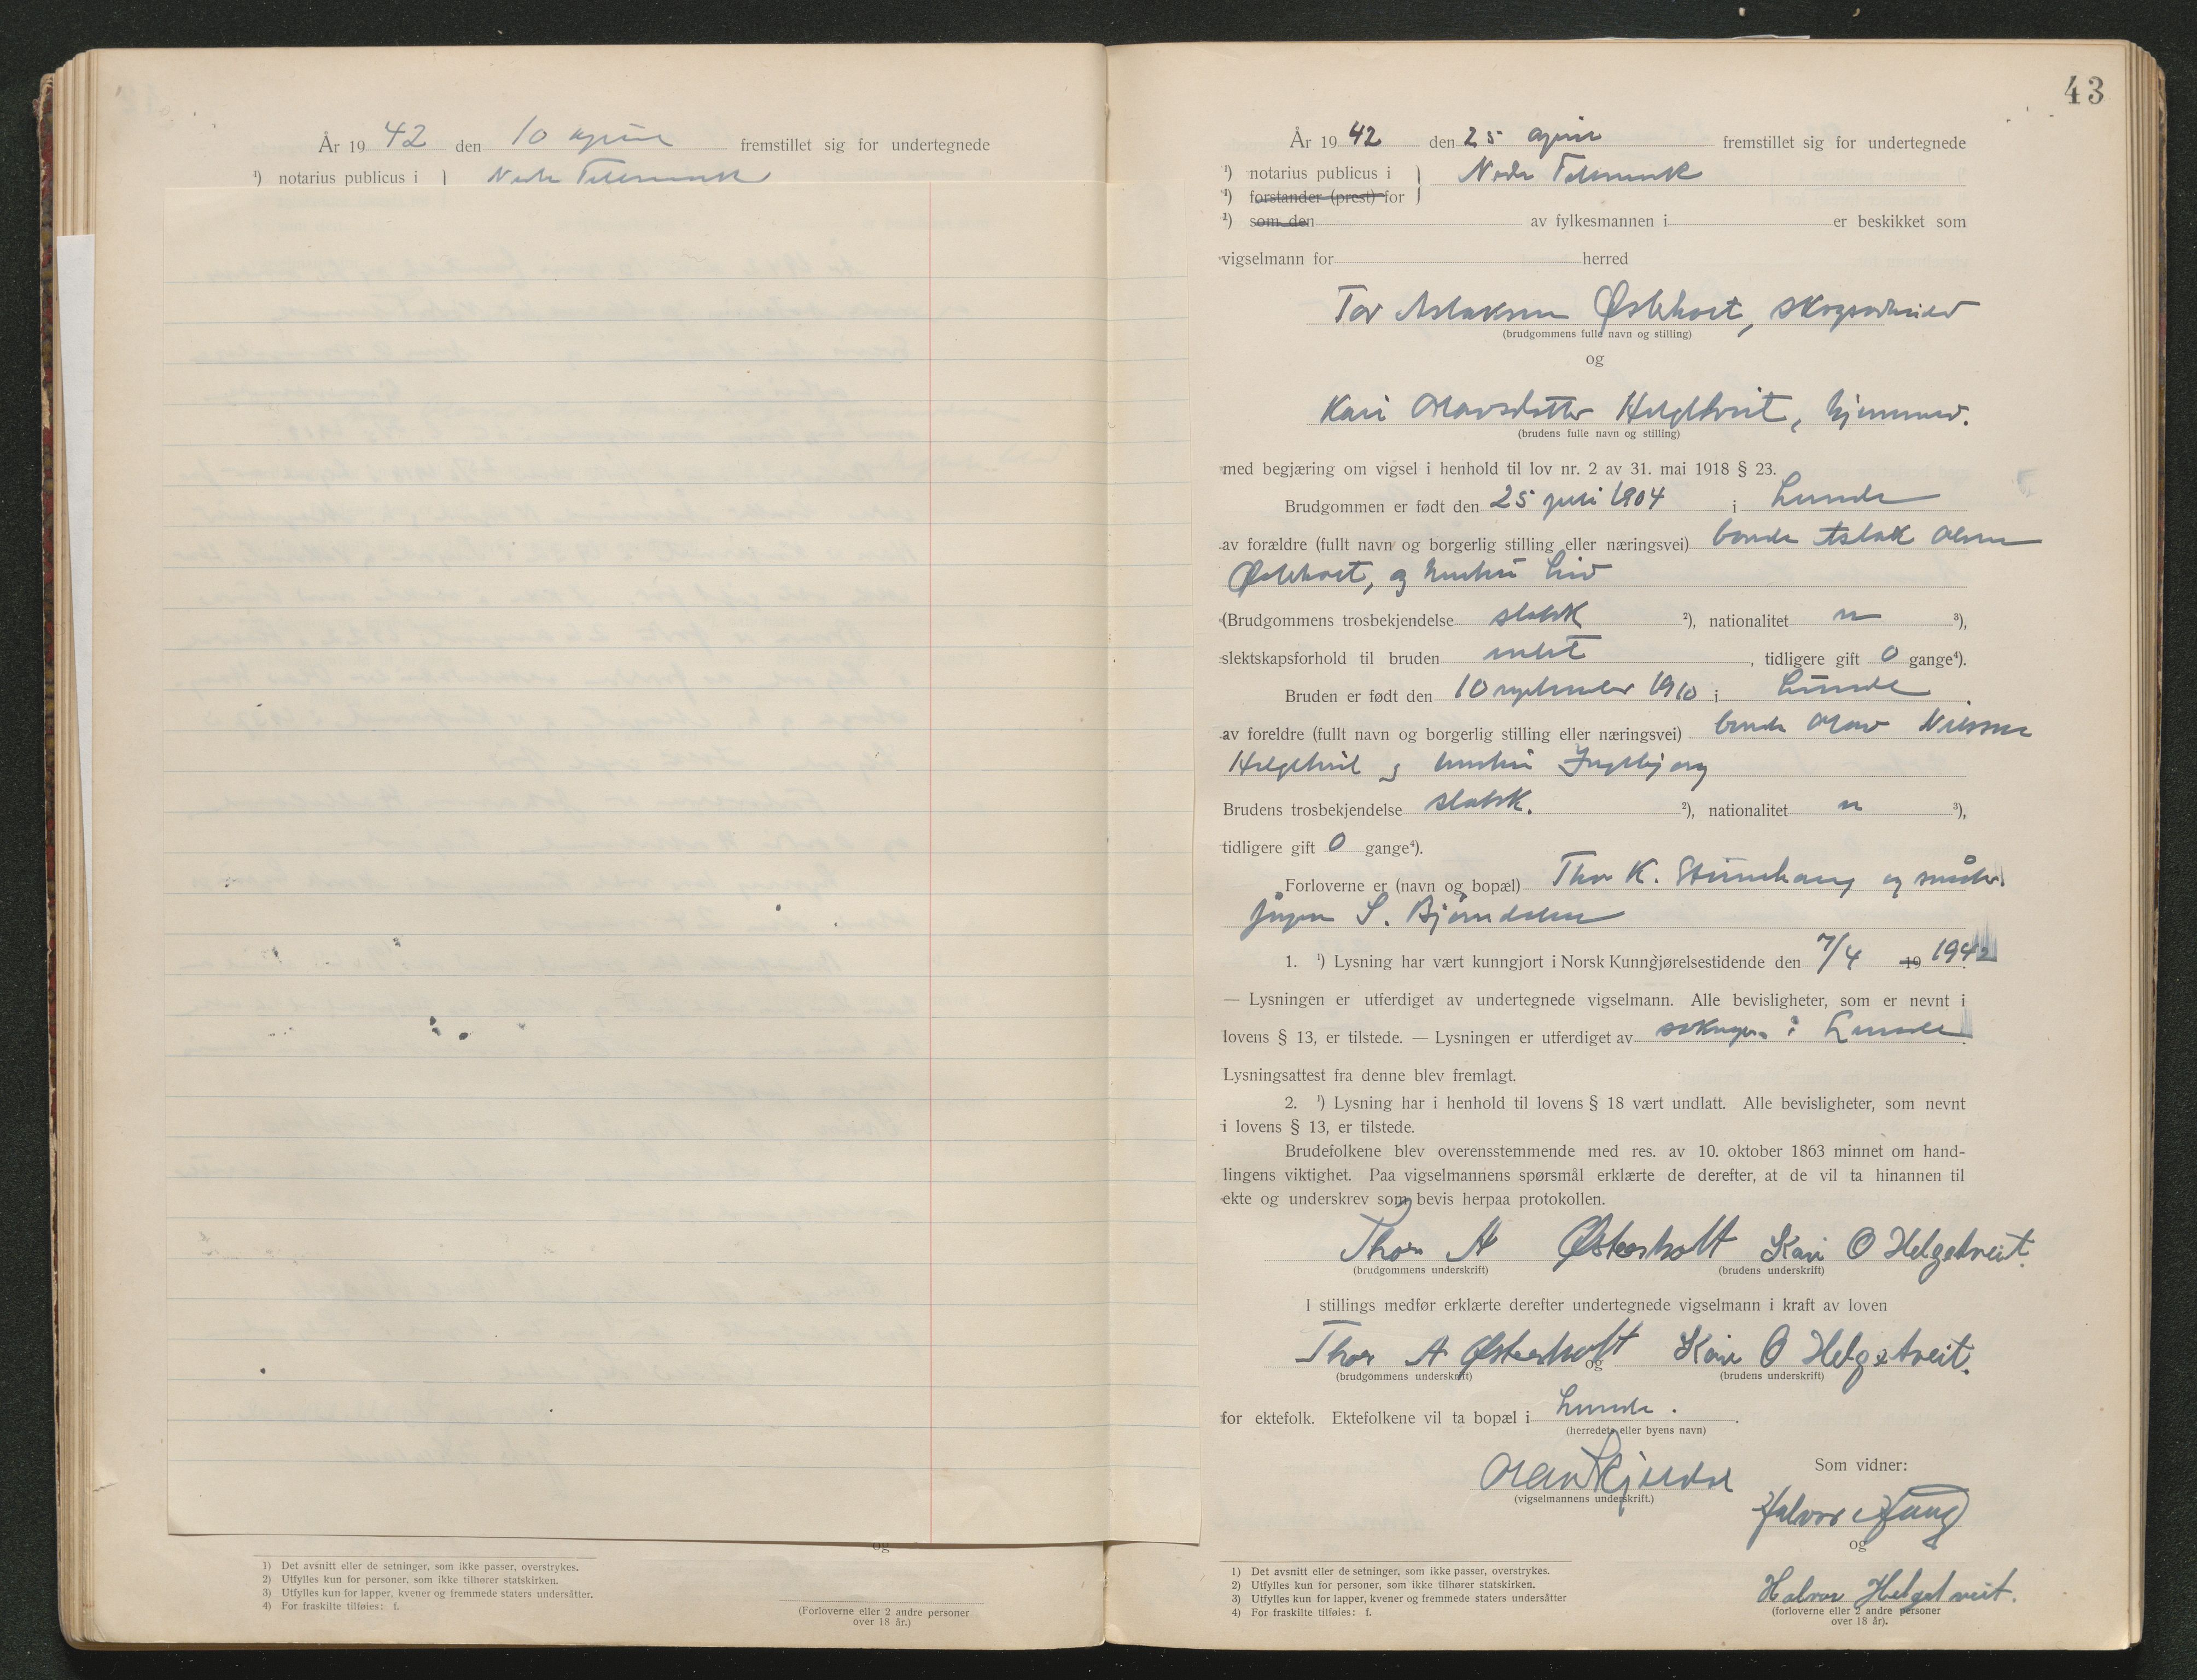 År 19 42 den 10 april fremstillet sig for undertegnede
¹) notarius publicus i } Nedre Telemark
og
1) Det avsnitt eller de setninger, som ikke passer, overstrykes.
2) Utfylles kun for personer, som ikke tilhører statskirken.
3) Utfylles kun for lapper, kvener og fremmede staters undersåtter.
4) For fraskilte tilføies: f.
(Forloverne eller 2 andre personer
over 18 år.)
43
År 19 42 den 25 april fremstillet sig for undertegnede
¹) notarius publicus i } Nedre Telemark
¹) forstander (prest) for
¹) som den av fylkesmannen i er beskikket som
vigselmann for herred
Tor Aslaksen Østeholt, skogsarbeider
(brudgommens fulle navn og stilling)
og
Kari Olavsdatter Helgetveit, hjemmev.
(brudens fulle navn og stilling)
med begjæring om vigsel i henhold til lov nr. 2 av 31. mai 1918 § 23.
Brudgommen er født den 25 juli 1904 i Lunde
av forældre (fullt navn og borgerlig stilling eller næringsvei) bonde Aslak Olsen
Østeholt, og hustru Liv
(Brudgommens trosbekjendelse statsk ²), nationalitet n ³),
slektskapsforhold til bruden intet, tidligere gift 0 gange⁴).
Bruden er født den 10 september 1910 i Lunde
av foreldre (fullt navn og borgerlig stilling eller næringsvei) bonde Olav Nilssen
Helgetveit og hustru Ingebjørg
Brudens trosbekjendelse statsk. ²), nationalitet n ³),
tidligere gift 0 gange⁴).
Forloverne er (navn og bopæl) Thor K. og
Jørgen S. Bjørndalen
1. ¹) Lysning har vært kunngjort i Norsk Kunngjørelsestidende den 7/4 19 1942
— Lysningen er utferdiget av undertegnede vigselmann. Alle bevisligheter, som er nevnt i
lovens § 13, er tilstede. — Lysningen er utferdiget av sokнepr. i Lunde
Lysningsattest fra denne blev fremlagt.
2. ¹) Lysning har i henhold til lovens § 18 vært undlatt. Alle bevisligheter, som nevnt
i lovens § 13, er tilstede.
Brudefolkene blev overensstemmende med res. av 10. oktober 1863 minnet om hand-
lingens viktighet. Paa vigselmannens spørsmål erklærte de derefter, at de vil ta hinannen til
ekte og underskrev som bevis herpaa protokollen.
Thor A Østerholt Kari O Helgetveit.
(brudgommens underskrift) (brudens underskrift)
I stillings medfør erklærte derefter undertegnede vigselmann i kraft av loven
Thor A Østerholt og Kari O Helgetveit.
(brudgommens underskrift) (brudens underskrift)
for ektefolk. Ektefolkene vil ta bopæl i Lunde.
(herredets eller byens navn)
Som vidner:
Olav
(vigselmannens underskrift.)
Halvor Haug
og
Halvor Helgetveit.
(forloverne eller 2 andre personer
over 18 år).
1) Det avsnitt eller de setninger, som ikke passer, overstrykes.
2) Utfylles kun for personer, som ikke tilhører statskirken.
3) Utfylles kun for lapper, kvener og fremmede staters undersåtter
4) For fraskilte tilføies: f.